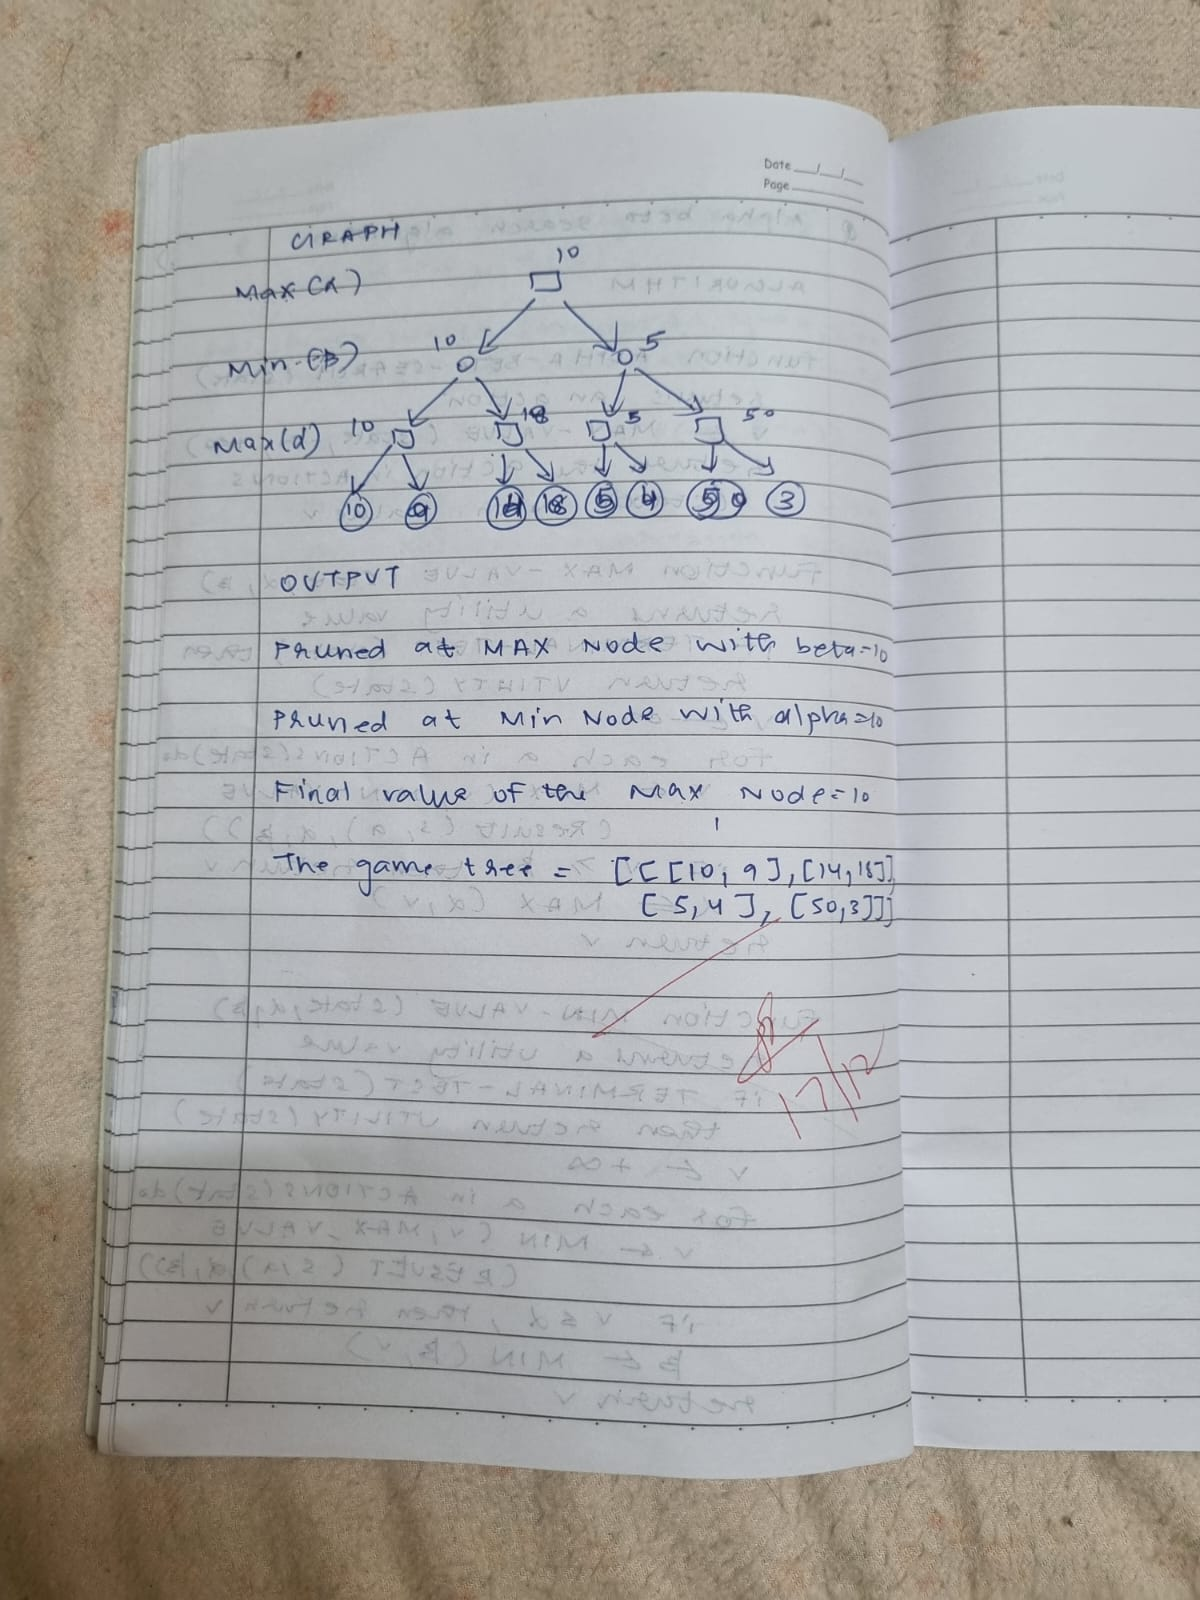 Date __/__/__
Page
GRAPH
10
Max(α)
10 5
Min-(β)
10 18 5 50
Max(α)
10 9 14 18 5 4 50 3
OUTPUT
Pruned at MAX Node with beta=10
Pruned at Min Node with alpha=10
Final value of the Max Node=10
The game tree = [[[10, 9], [14, 18]],
[5, 4], [50,3]]]
17/12